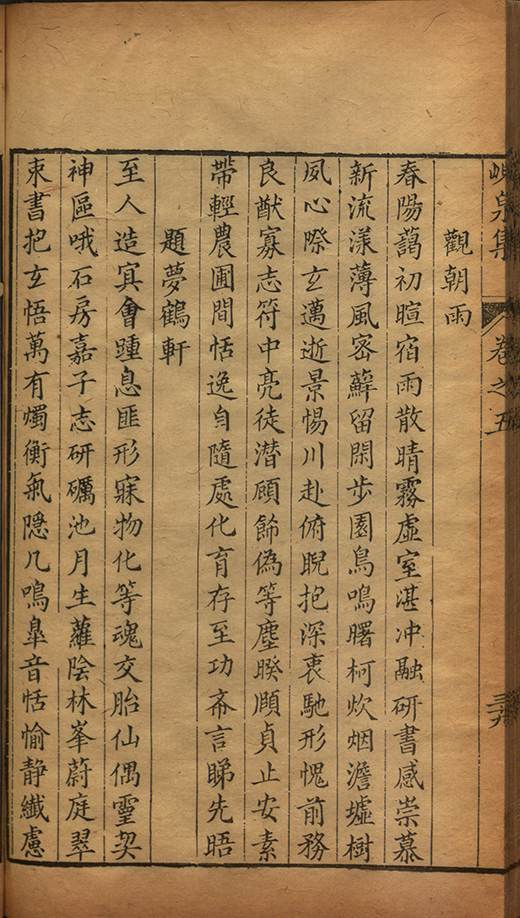 峴泉集 卷之五 三六
觀朝雨
春陽藹初暄宿雨散晴霧虛室湛冲融研書感崇慕
新流漾薄風密蘚留閑步園鳥鳴曙柯炊烟澹墟樹
夙心際玄邁逝景惕川赴俯睨抱深衷馳形愧前務
良猷寡志符中亮徒潛顧飾偽等塵睽頤貞止安素
帶輕農圃間恬逸自隨處化育存至功斋言睇先晤
題夢鶴軒
至人造冥會踵息匪形寐物化等魂交胎仙偶𩆜契
神區哦石房嘉子志研礪池月生蘿陰林峯蔚庭翠
束書把玄悟萬有燭衡氣隱几鳴臯音恬愉静纖慮